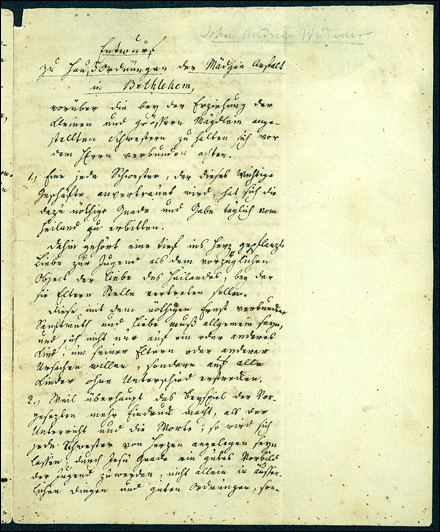 John Andrew Hübener
Entwurf
zu Haus Ordnungen der Mädgen Anstalt
in Bethlehem,
worüber die bey der Erziehung der
kleinen und größern Mägdlein ange-
stellten Schwestern zu halten sich vor
dem Herrn verbunden achten.
1.) Eine jede Schwester, der dieses wichtige
Geschäfte anvertrauet wird, hat sich die
dazu nöthige Gnade und Gabe täglich vom
Heiland zu erbitten.
Dahin gehört eine tief ins Herz gepflanzte
Liebe zur Jugend als dem vorzüglichen
Object der Liebe des Heilandes, bey der
sie Eltern Stelle vertreten sollen.
Diese mit dem nöthigen Ernst verbundene
Sanftmuth und Liebe muß allgemein seyn,
und sich nicht nur auf ein oder anderes
Kind, um seiner Eltern oder anderer
Ursachen willen, sondern auf alle
Kinder ohne Unterschied erstrecken.
2.) Weil überhaupt das Beyspiel der Vor-
gesezten mehr Eindruck macht, als der
Unterricht und die Worte; so wird sich
jede Schwester von Herzen angelegen seyn
lassen, durch Jesu Gnade ein gutes Vorbild
der Jugend zu werden, nicht allein in äusser-
lichen Dingen und guten Ordnungen, son-